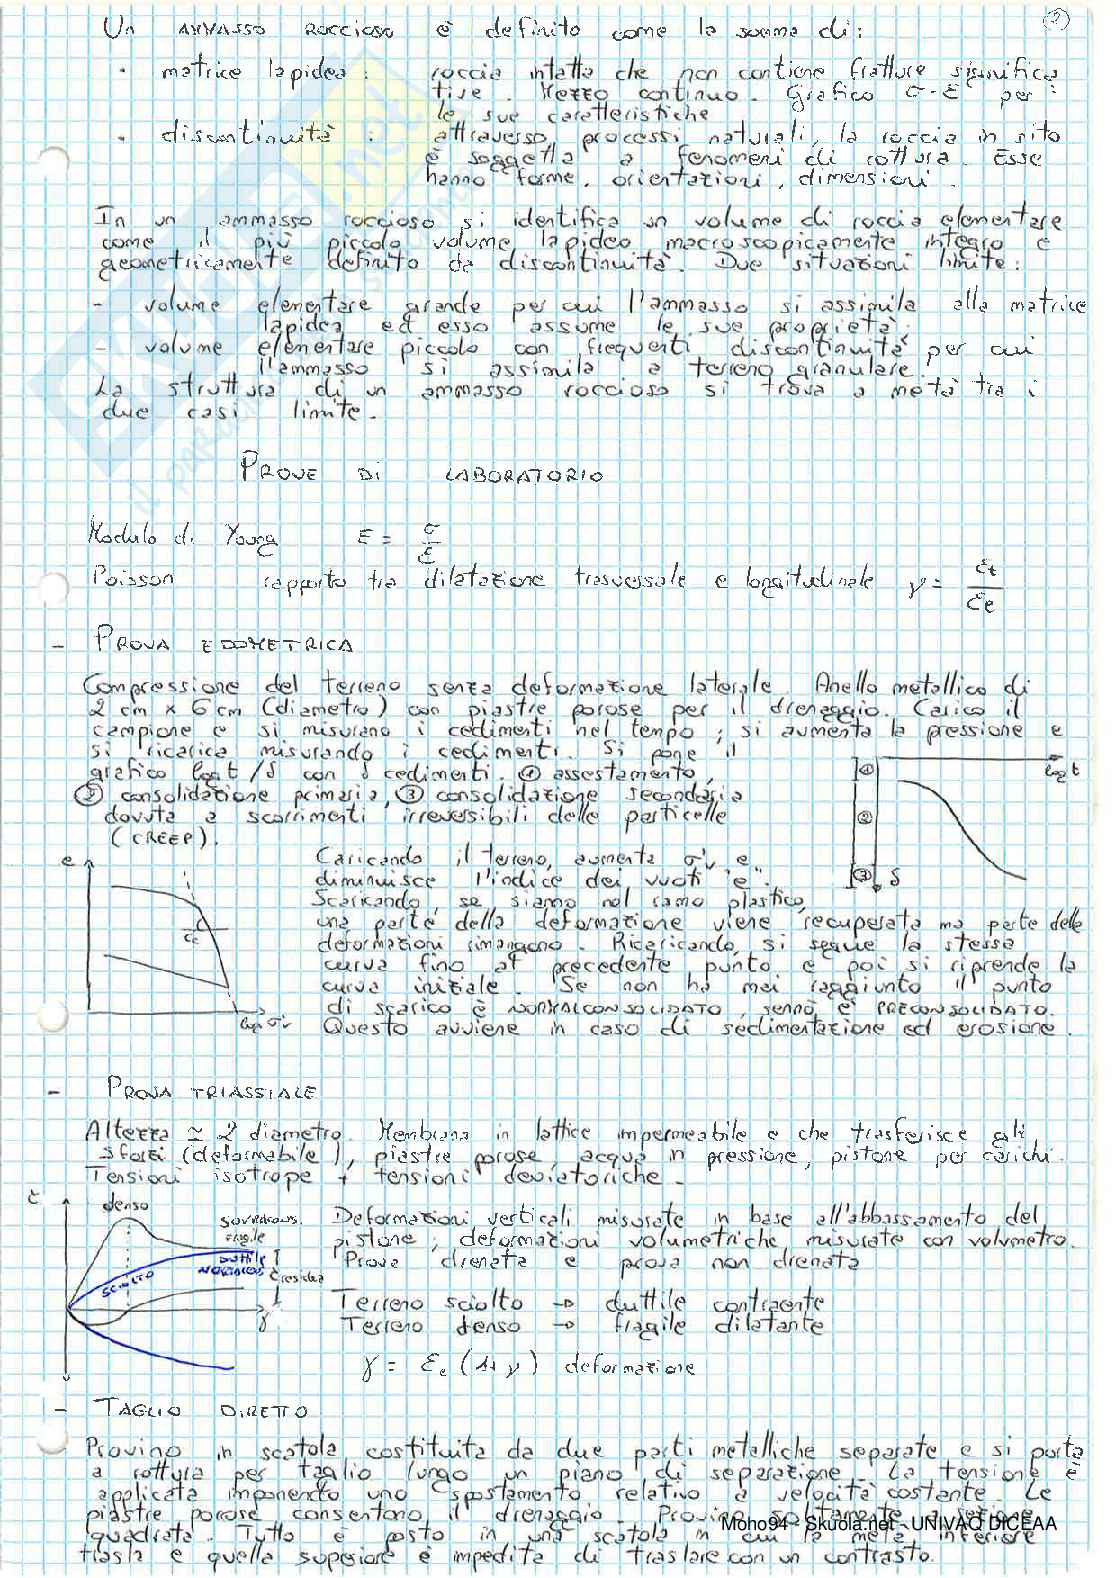 2
Un AMMASSO ROCCIOSO è definito come la somma di:
• matrice lapidea : roccia intatta che non contiene fratture significa
tive. Mezzo continuo. Grafico σ-ε per
le sue caratteristiche
• discontinuità : attraverso processi naturali, la roccia in sito
è soggetta a fenomeni di rottura. Esse
hanno forme, orientazioni, dimensioni.
In un ammasso roccioso si identifica un volume di roccia elementare
come il più piccolo volume lapideo macroscopicamente integro e
geometricamente definito da discontinuità. Due situazioni limite:
- volume elementare grande per cui l'ammasso si assimila alla matrice
lapidea ed esso assume le sue proprietà.
- volume elementare piccolo con frequenti discontinuità per cui
l'ammasso si assimila a terreno granulare.
La struttura di un ammasso roccioso si trova a metà tra i
due casi limite.
PROVE DI LABORATORIO
Modulo di Young E = σ/ε
Poisson rapporto tra dilatazione trasversale e longitudinale ν = εt/εe
- PROVA EDOMETRICA
Compressione del terreno senza deformazione laterale. Anello metallico di
2 cm × 6 cm (diametro) con piastre porose per il drenaggio. Carico il
campione e si misurano i cedimenti nel tempo; si aumenta la pressione e
si ricarica misurando i cedimenti. Si pone il
grafico log t / δ con δ cedimenti. ① assestamento,
② consolidazione primaria, ③ consolidazione secondaria
dovuta a scorrimenti irreversibili delle particelle
(CREEP).
① log t
②
③ δ
e
Cc
log σ'v
Caricando il terreno, aumenta σ'v e
diminuisce l'indice dei vuoti "e".
Scaricando, se siamo nel ramo plastico,
una parte della deformazione viene recuperata ma parte delle
deformazioni rimangono. Ricaricando, si segue la stessa
curva fino al precedente punto e poi si riprende la
curva iniziale. Se non ha mai raggiunto il punto
di scarico è NORMALCONSOLIDATO, sennò è PRECONSOLIDATO.
Questo avviene in caso di sedimentazione ed erosione.
- PROVA TRIASSIALE
Altezza ≃ 2 diametro. Membrana in lattice impermeabile e che trasferisce gli
sforzi (deformabile), piastre porose, acqua in pressione, pistone per carichi.
Tensioni isotrope + tensioni deviatoriche.
τ
denso
SOVRACONS.
fragile
SCIOLTO
DUTTILE
NORMALCONS
τ residua
γ
Deformazioni verticali misurate in base all'abbassamento del
pistone; deformazioni volumetriche misurate con volumetro.
Prova drenata e prova non drenata
Terreno sciolto → duttile contraente
Terreno denso → fragile dilatante
γ = εe (1+ν) deformazione
- TAGLIO DIRETTO
Provino in scatola costituita da due parti metalliche separate e si porta
a rottura per taglio lungo un piano di separazione. La tensione è
applicata imponendo uno spostamento relativo a velocità costante. Le
piastre porose consentono il drenaggio. Provino solitamente a sezione
quadrata. Tutto è posto in una scatola in cui la metà inferiore
trasla e quella superiore è impedita di traslare con un contrasto.
Moho94 - Skuola.net - UNIVAQ DICEAA